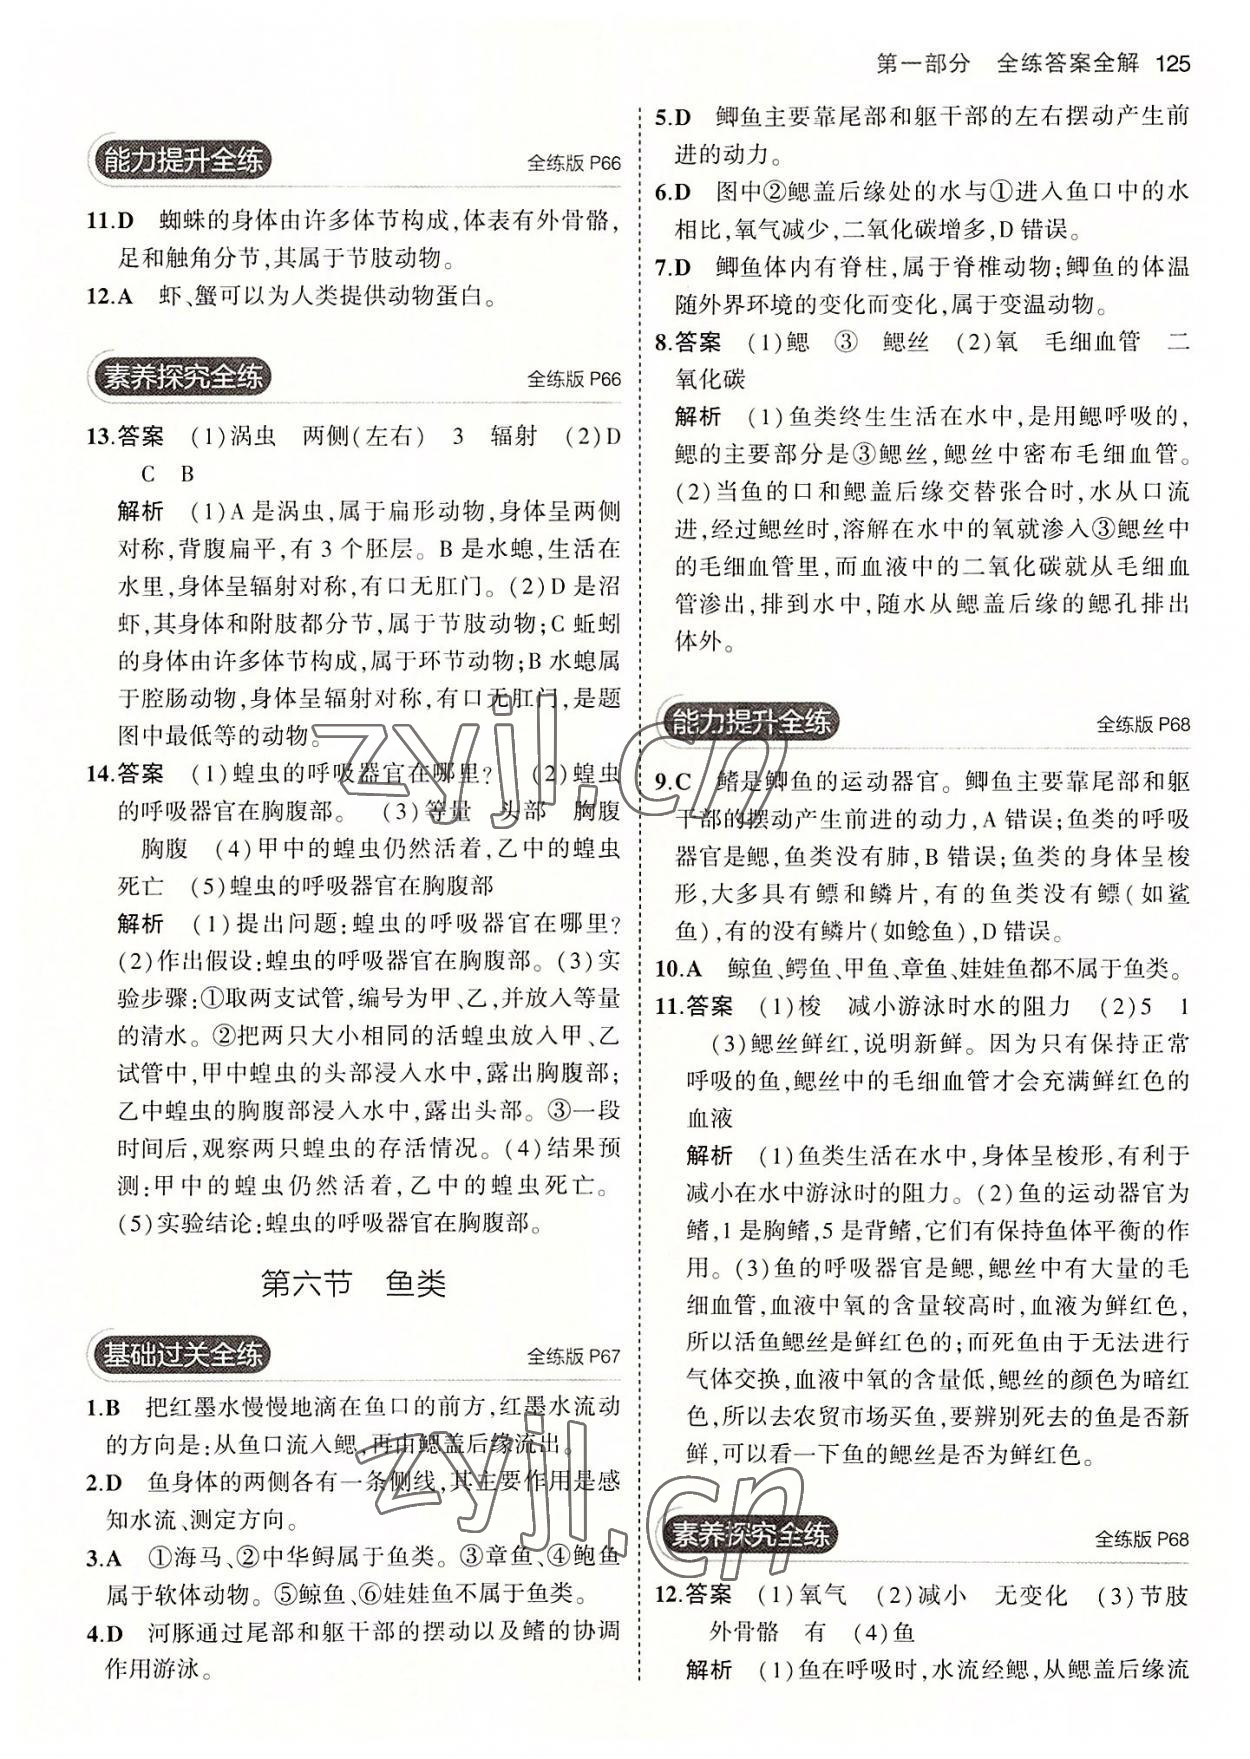 第一部分　全练答案全解 125
能力提升全练　全练版 P66
11.D　蜘蛛的身体由许多体节构成,体表有外骨骼,
足和触角分节,其属于节肢动物。
12.A　虾、蟹可以为人类提供动物蛋白。
素养探究全练　全练版 P66
13.答案　(1)涡虫　两侧(左右)　3　辐射　(2)D
C　B
解析　(1)A 是涡虫,属于扁形动物,身体呈两侧
对称,背腹扁平,有 3 个胚层。B 是水螅,生活在
水里,身体呈辐射对称,有口无肛门。(2)D 是沼
虾,其身体和附肢都分节,属于节肢动物;C 蚯蚓
的身体由许多体节构成,属于环节动物;B 水螅属
于腔肠动物,身体呈辐射对称,有口无肛门,是题
图中最低等的动物。
14.答案　(1)蝗虫的呼吸器官在哪里?　(2)蝗虫
的呼吸器官在胸腹部。　(3)等量　头部　胸腹
胸腹　(4)甲中的蝗虫仍然活着,乙中的蝗虫
死亡　(5)蝗虫的呼吸器官在胸腹部
解析　(1)提出问题:蝗虫的呼吸器官在哪里?
(2)作出假设:蝗虫的呼吸器官在胸腹部。(3)实
验步骤:①取两支试管,编号为甲、乙,并放入等量
的清水。②把两只大小相同的活蝗虫放入甲、乙
试管中,甲中蝗虫的头部浸入水中,露出胸腹部;
乙中蝗虫的胸腹部浸入水中,露出头部。③一段
时间后,观察两只蝗虫的存活情况。(4)结果预
测:甲中的蝗虫仍然活着,乙中的蝗虫死亡。
(5)实验结论:蝗虫的呼吸器官在胸腹部。
第六节　鱼类
基础过关全练　全练版 P67
1.B　把红墨水慢慢地滴在鱼口的前方,红墨水流动
的方向是:从鱼口流入鳃,再由鳃盖后缘流出。
2.D　鱼身体的两侧各有一条侧线,其主要作用是感
知水流、测定方向。
3.A　①海马、②中华鲟属于鱼类。③章鱼、④鲍鱼
属于软体动物。⑤鲸鱼、⑥娃娃鱼不属于鱼类。
4.D　河豚通过尾部和躯干部的摆动以及鳍的协调
作用游泳。
5.D　鲫鱼主要靠尾部和躯干部的左右摆动产生前
进的动力。
6.D　图中②鳃盖后缘处的水与①进入鱼口中的水
相比,氧气减少,二氧化碳增多,D 错误。
7.D　鲫鱼体内有脊柱,属于脊椎动物;鲫鱼的体温
随外界环境的变化而变化,属于变温动物。
8.答案　(1)鳃　③　鳃丝　(2)氧　毛细血管　二
氧化碳
解析　(1)鱼类终生生活在水中,是用鳃呼吸的,
鳃的主要部分是③鳃丝,鳃丝中密布毛细血管。
(2)当鱼的口和鳃盖后缘交替张合时,水从口流
进,经过鳃丝时,溶解在水中的氧就渗入③鳃丝中
的毛细血管里,而血液中的二氧化碳就从毛细血
管渗出,排到水中,随水从鳃盖后缘的鳃孔排出
体外。
能力提升全练　全练版 P68
9.C　鳍是鲫鱼的运动器官。鲫鱼主要靠尾部和躯
干部的摆动产生前进的动力,A 错误;鱼类的呼吸
器官是鳃,鱼类没有肺,B 错误;鱼类的身体呈梭
形,大多具有鳔和鳞片,有的鱼类没有鳔(如鲨
鱼),有的没有鳞片(如鲶鱼),D 错误。
10.A　鲸鱼、鳄鱼、甲鱼、章鱼、娃娃鱼都不属于鱼类。
11.答案　(1)梭　减小游泳时水的阻力　(2)5　1
(3)鳃丝鲜红,说明新鲜。因为只有保持正常
呼吸的鱼,鳃丝中的毛细血管才会充满鲜红色的
血液
解析　(1)鱼类生活在水中,身体呈梭形,有利于
减小在水中游泳时的阻力。(2)鱼的运动器官为
鳍,1 是胸鳍,5 是背鳍,它们有保持鱼体平衡的作
用。(3)鱼的呼吸器官是鳃,鳃丝中有大量的毛
细血管,血液中氧的含量较高时,血液为鲜红色,
所以活鱼鳃丝是鲜红色的;而死鱼由于无法进行
气体交换,血液中氧的含量低,鳃丝的颜色为暗红
色,所以去农贸市场买鱼,要辨别死去的鱼是否新
鲜,可以看一下鱼的鳃丝是否为鲜红色。
素养探究全练　全练版 P68
12.答案　(1)氧气　(2)减小　无变化　(3)节肢
外骨骼　有　(4)鱼
解析　(1)鱼在呼吸时,水流经鳃,从鳃盖后缘流
zyjl.cn
zyjl.cn